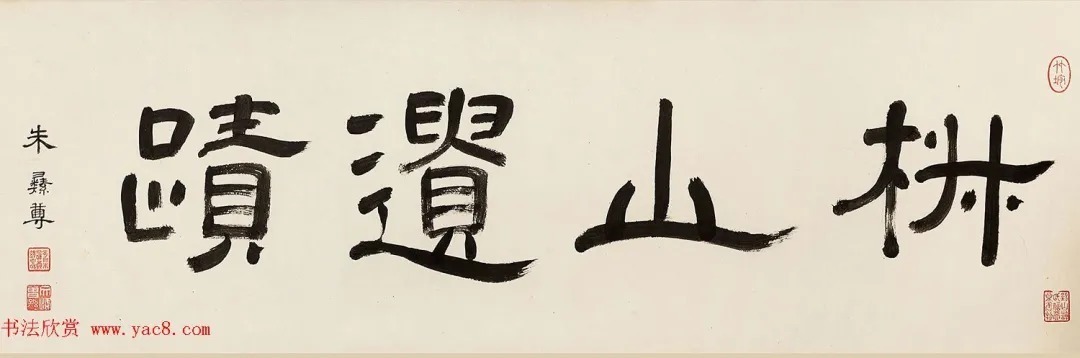 竹垞
山遺蹟
朱彝尊
书法欣赏 www.yac8.com